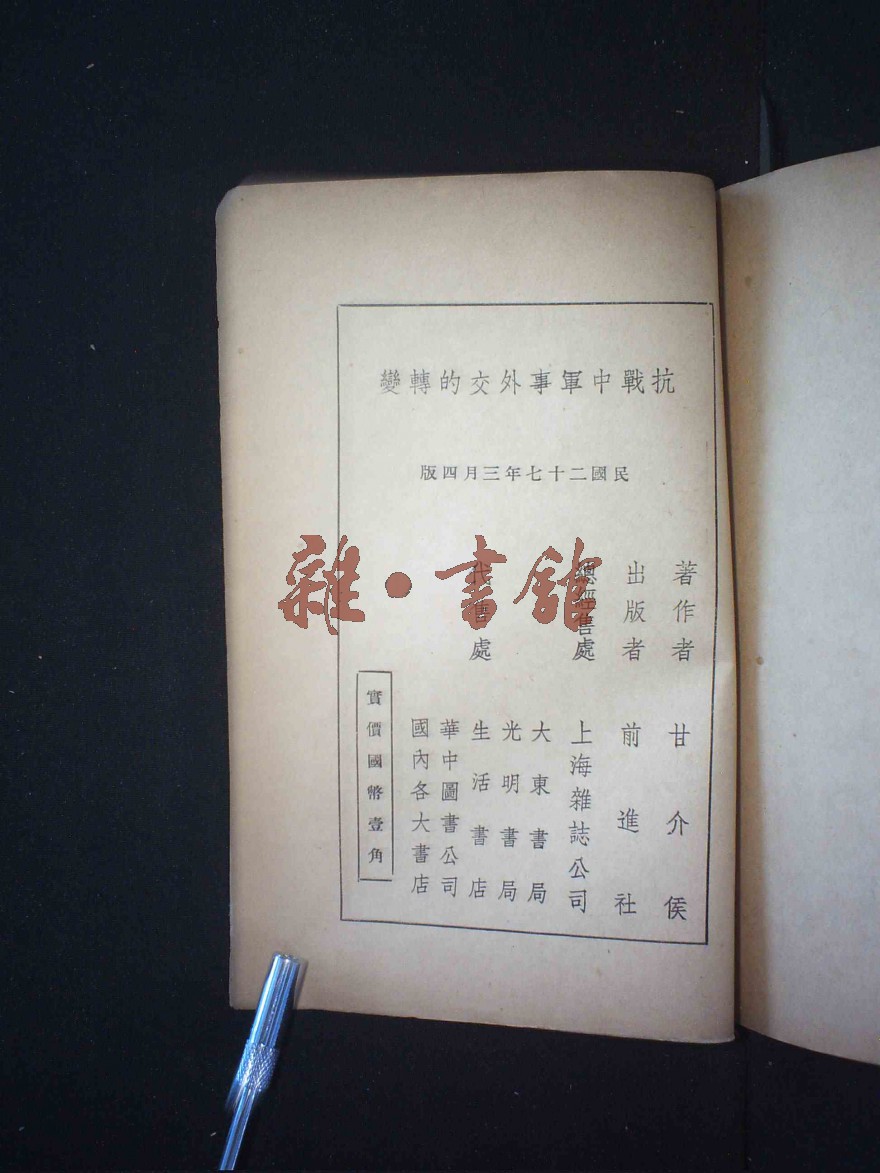 抗戰中軍事外交的轉變
民國二十七年三月四版
著作者 甘介侯
出版者 前進社
總經售處 上海雜誌公司
大東書局
光明書局
代售處 生活書店
華中圖書公司
國內各大書店
實價國幣壹角
雜·書館